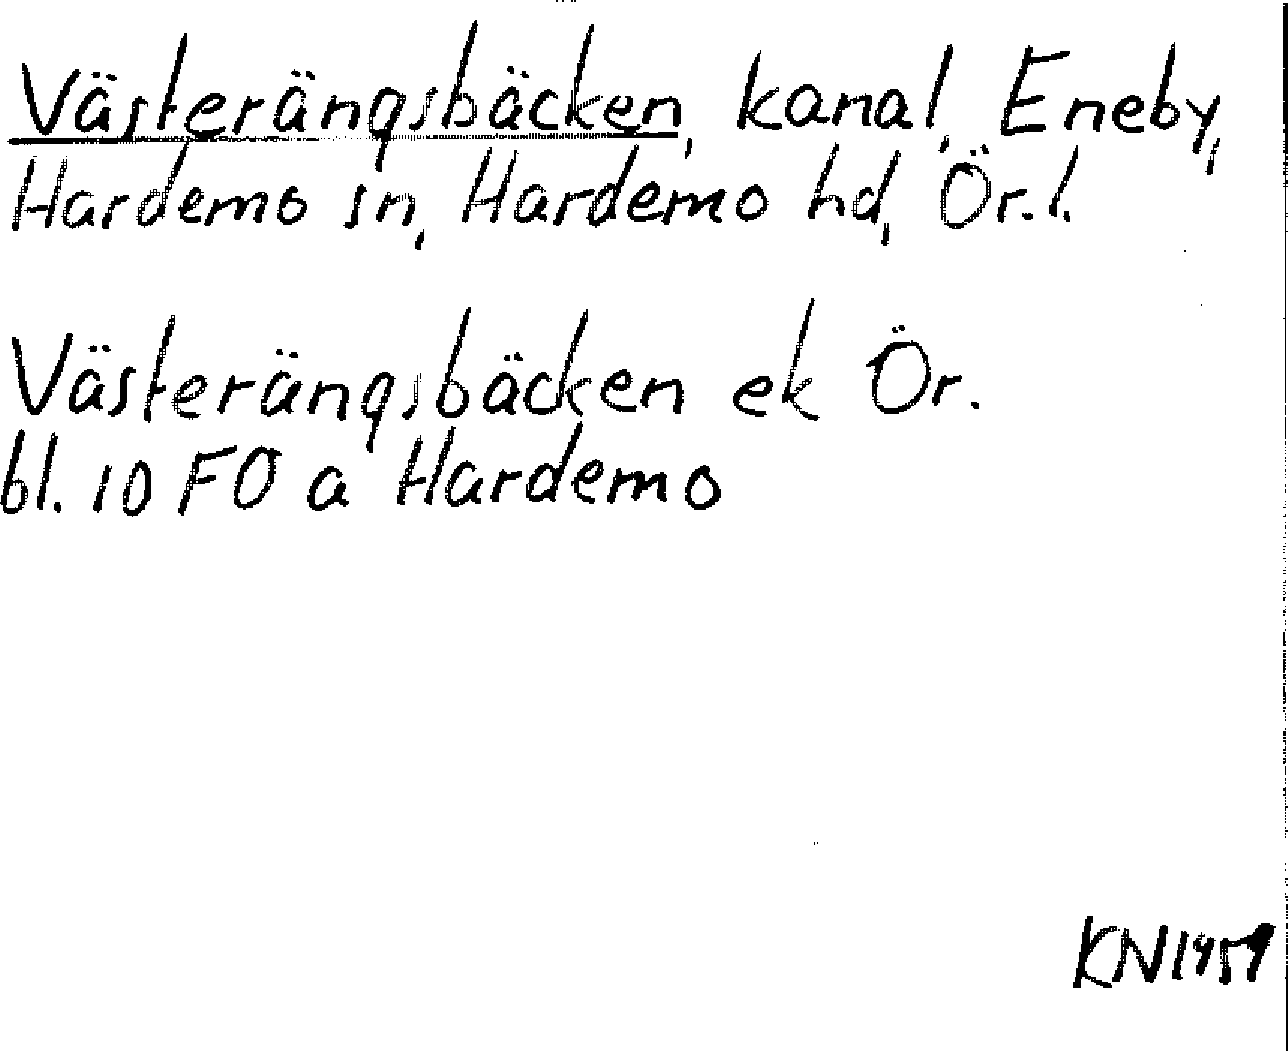 Västerängsbäcken, kanal, Eneby,
Hardemo sn, Hardemo hd, Ör.l.
Västerängsbäcken ek Ör.
bl. 10 FO a Hardemo
KN1959